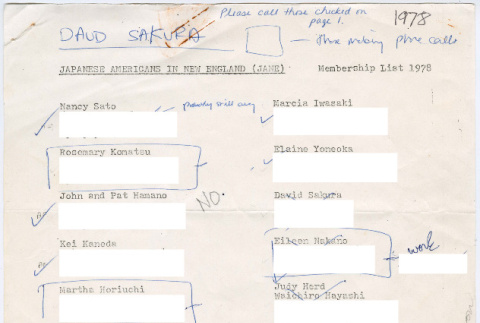 Please call those checked on
page 1.
1978
DAVID SAKURA
those making phone calls
JAPANESE AMERICANS IN NEW ENGLAND (JANE) Membership List 1978
Nancy Sato
probably still away
Marcia Iwasaki
Rosemary Komatsu
Elaine Yoneoka
John and Pat Hamano
NO.
David Sakura
Kei Kaneda
Eileen Nakano
work
Martha Horiuchi
Judy Hard
Waichiro Hayashi